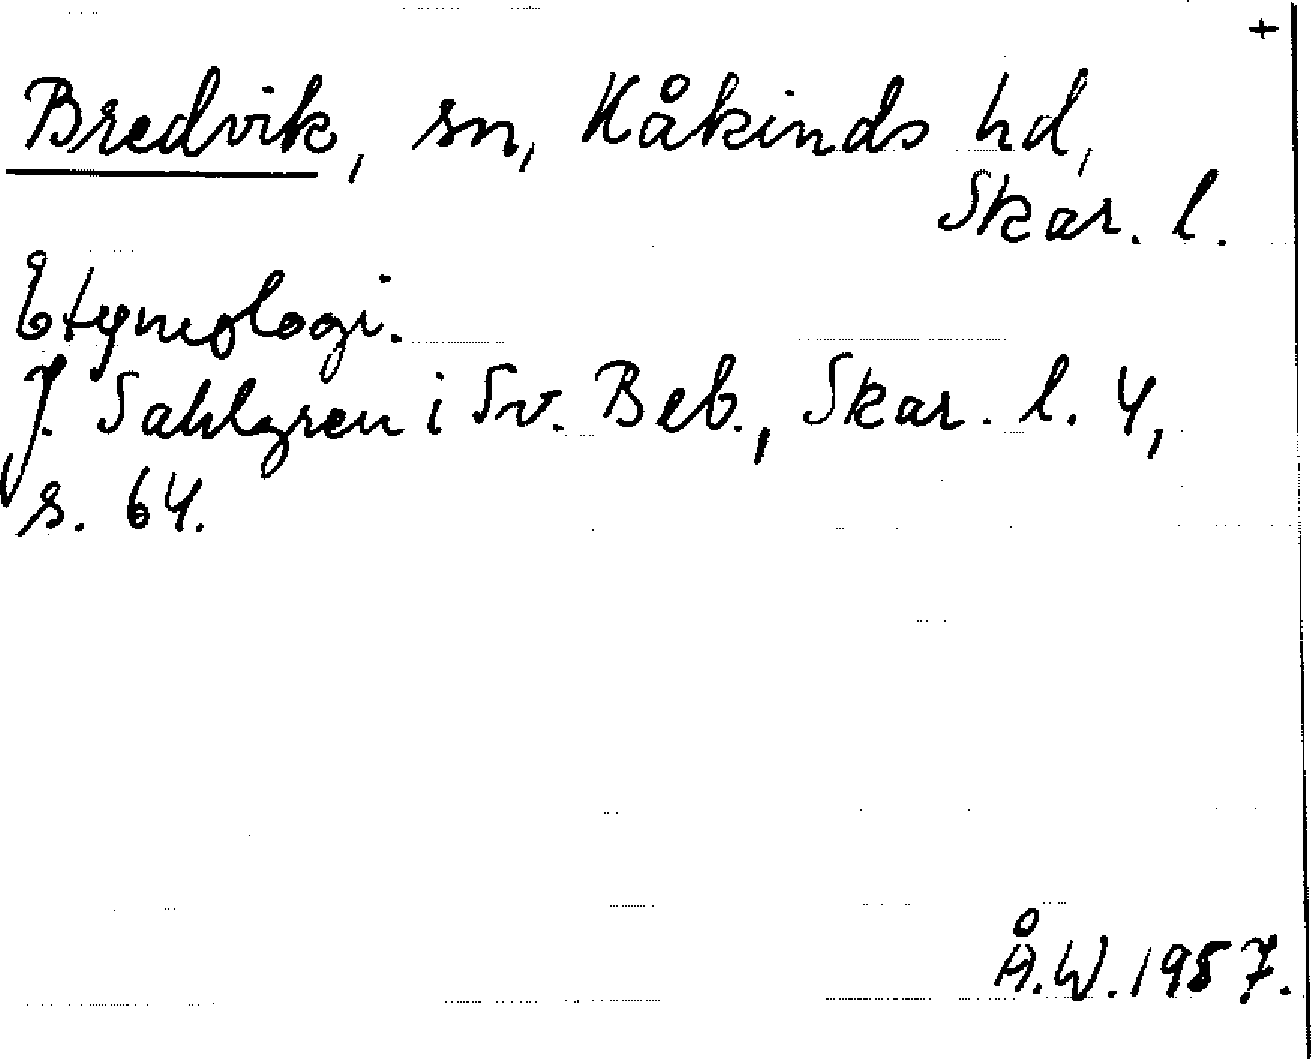 +
Bredvik, sn, Kåkinds hd,
Skar. l.
Etymologi.
J. Sahlgren i Sv. Beb., Skar. l. 4,
s. 64.
Å.W. 1957.